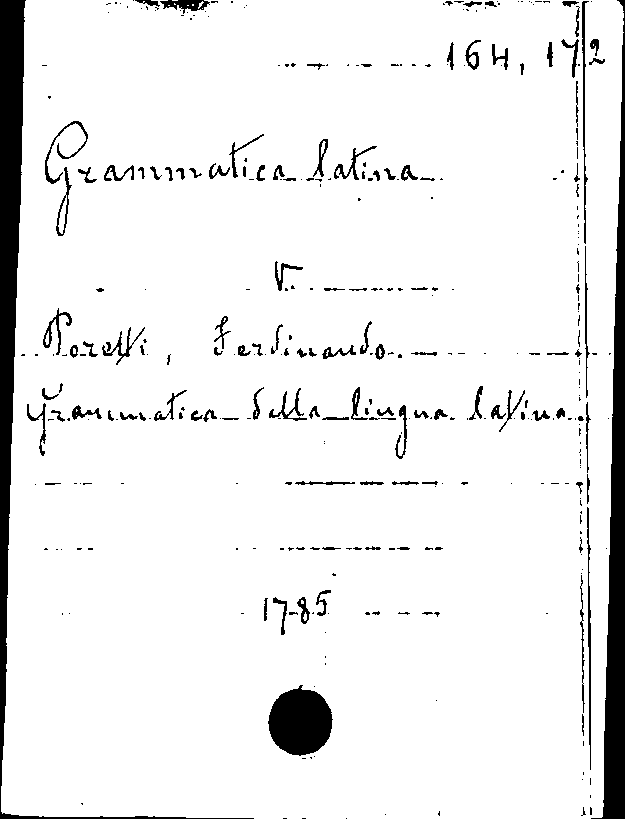 164, 172
Grammatica latina
V.
Poretti, Ferdinando.
Grammatica della lingua latina.
1785